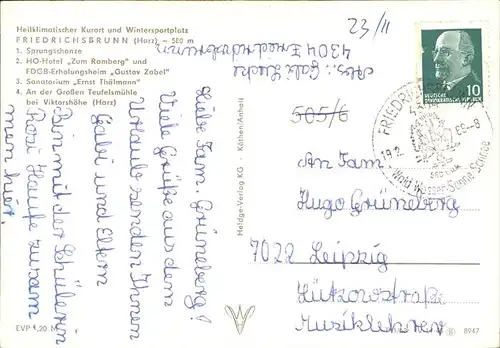 Heilklimatischer Kurort und Wintersportplatz
FRIEDRICHSBRUNN (Harz) – 580 m
1. Sprungschanze
2. HO-Hotel „Zum Ramberg" und
FDGB-Erholungsheim „Gustav Zabel"
3. Sanatorium „Ernst Thälmann"
4. An der Großen Teufelsmühle
bei Viktorshöhe (Harz)
23/II
Abs.: Gabi
4304 Friedrichsbrunn
Liebe Fam. Grüneberg!
Viele Grüße aus dem
Urlaub senden Ihnen
Gabi und Eltern
Bin mit der Schülerin
Rosi Haufe zusam
men hier.
Heldge-Verlag KG · Köthen/Anhalt
DEUTSCHE
DEMOKRATISCHE REPUBLIK
10
19.2.
-8
Wald Wasser Sonne
505/6
An Fam.
Hugo Grüneberg
7022 Leipzig
Lützowstraße
Musiklehrer
EVP 0,20
8947